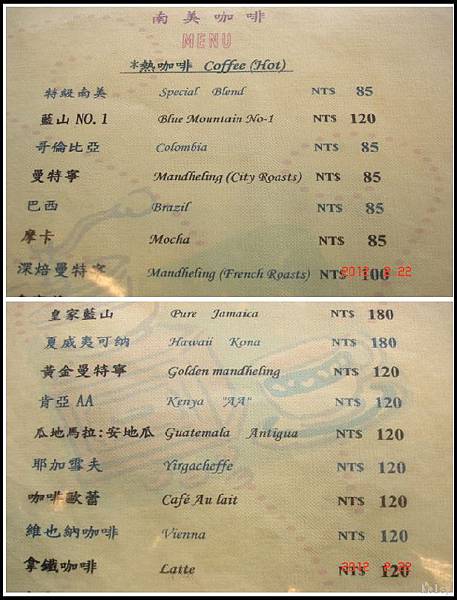 南美咖啡
MENU
*熱咖啡 Coffee (Hot)
特級南美 Special Blend NT$ 85
藍山 NO.1 Blue Mountain No-1 NT$ 120
哥倫比亞 Colombia NT$ 85
曼特寧 Mandheling (City Roasts) NT$ 85
巴西 Brazil NT$ 85
摩卡 Mocha NT$ 85
深焙曼特寧 Mandheling (French Roasts) NT$ 100
2012 2 22
皇家藍山 Pure Jamaica NT$ 180
夏威夷可納 Hawaii Kona NT$ 180
黃金曼特寧 Golden mandheling NT$ 120
肯亞 AA Kenya "AA" NT$ 120
瓜地馬拉:安地瓜 Guatemala Antigua NT$ 120
耶加雪夫 Yirgacheffe NT$ 120
咖啡歐蕾 Café Au lait NT$ 120
維也納咖啡 Vienna NT$ 120
拿鐵咖啡 Latte NT$ 120
2012 2 22